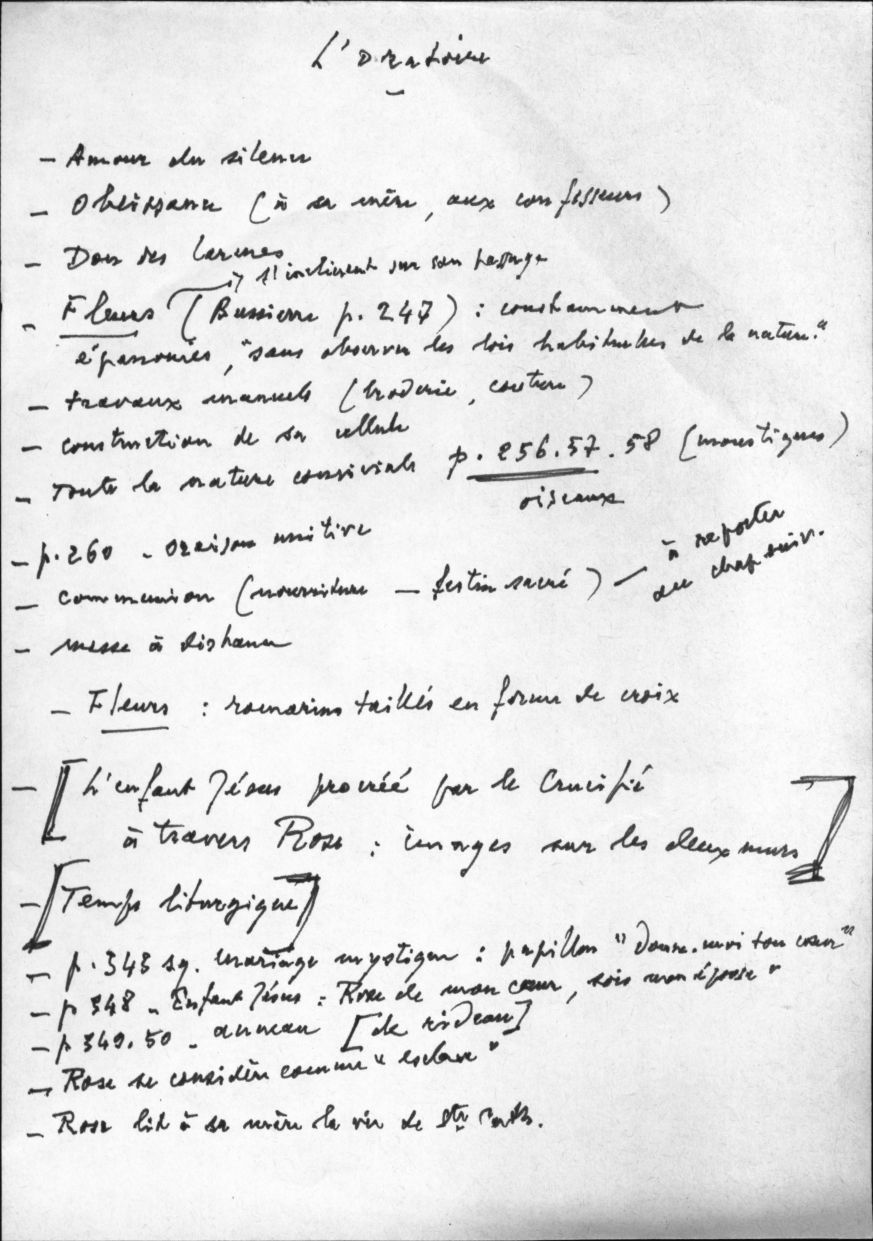 L'oratoire
– Amour du silence
– Obéissance (à sa mère, aux confesseurs)
– Don des larmes
→ s'inclinent sur son passage
– Fleurs (Bussierre p. 247) : constamment
épanouies, "sans observer les lois habituelles de la nature."
– travaux manuels (broderie, couture)
– construction de sa cellule
– Toute la nature conviviale p. 256.57.58 (moustiques)
oiseaux
– p. 260 – oraison unitive
– communion (nourriture – festin sacré) – à reporter
au chap. suiv.
– messe à distance
– Fleurs : romarins taillés en forme de croix
– [L'enfant Jésus procréé par le Crucifié
à travers Rose : images sur les deux murs]
– [Temps liturgique]
– p. 343 sq. mariage mystique : papillon "Donne-moi ton cœur"
– p 348 – Enfant Jésus : Rose de mon cœur, sois mon épouse"
– p 349.50 – anneau [de rideau]
– Rose se considère comme "esclave"
– Rose lit à sa mère la vie de Ste Cath.